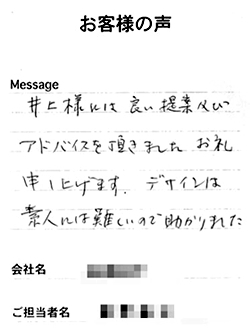 お客様の声
Message
井上様には 良い提案及び
アドバイスを頂きました お礼
申し上げます. デザインは
素人には難しいので助かりました
会社名
ご担当者名